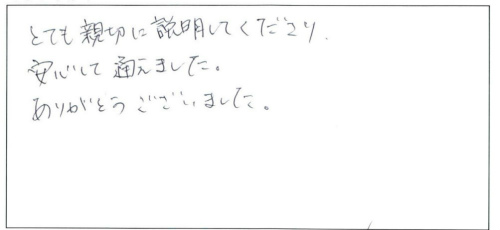 とても親切に説明してくださり、
安心して通えました。
ありがとうございました。